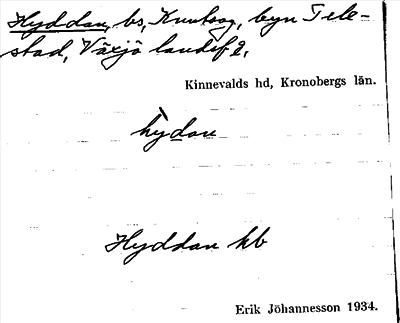 Hyddan, bs, Knutsog, byn Tele-
stad, Växjö landsf 2.
Kinnevalds hd, Kronobergs län.
hỳdan
Hyddan kb
Erik Jöhannesson 1934.